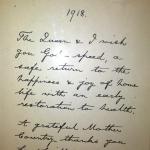 1918.
The Queen & I wish
you God-speed, a
safe return to the
happiness & joy of home
life with an early
restoration to health.
A grateful Mother
Country thanks you